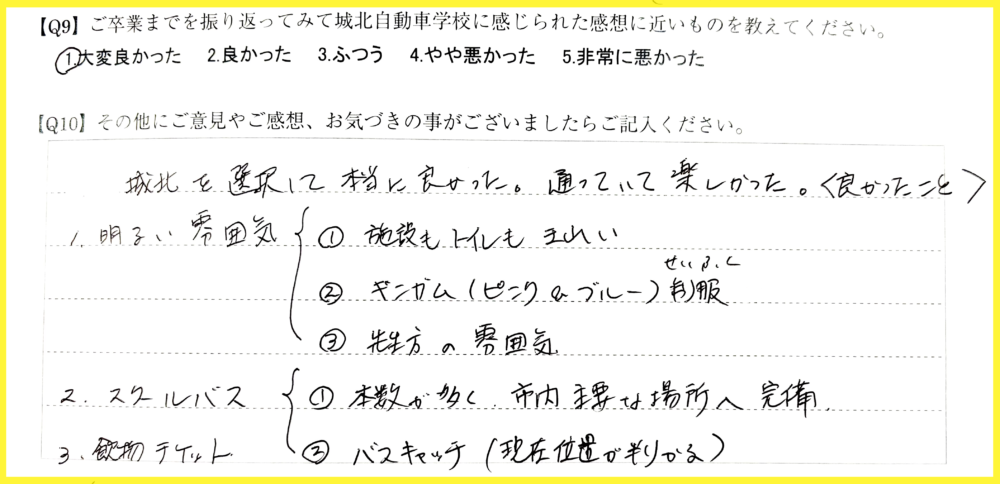 【Q9】ご卒業までを振り返ってみて城北自動車学校に感じられた感想に近いものを教えてください。
①大変良かった 2.良かった 3.ふつう 4.やや悪かった 5.非常に悪かった
【Q10】その他にご意見やご感想、お気づきの事がございましたらご記入ください。
城北を選択して本当に良かった。通っていて楽しかった。〈良かったこと〉
1. 明るい雰囲気 ① 施設もトイレもきれい
せいふく
② ギンガム(ピンク&ブルー)制服
③ 先生方の雰囲気
2. スクールバス ① 本数が多く、市内主要な場所へ完備.
3. 飲物チケット ② バスキャッチ(現在位置が判かる)